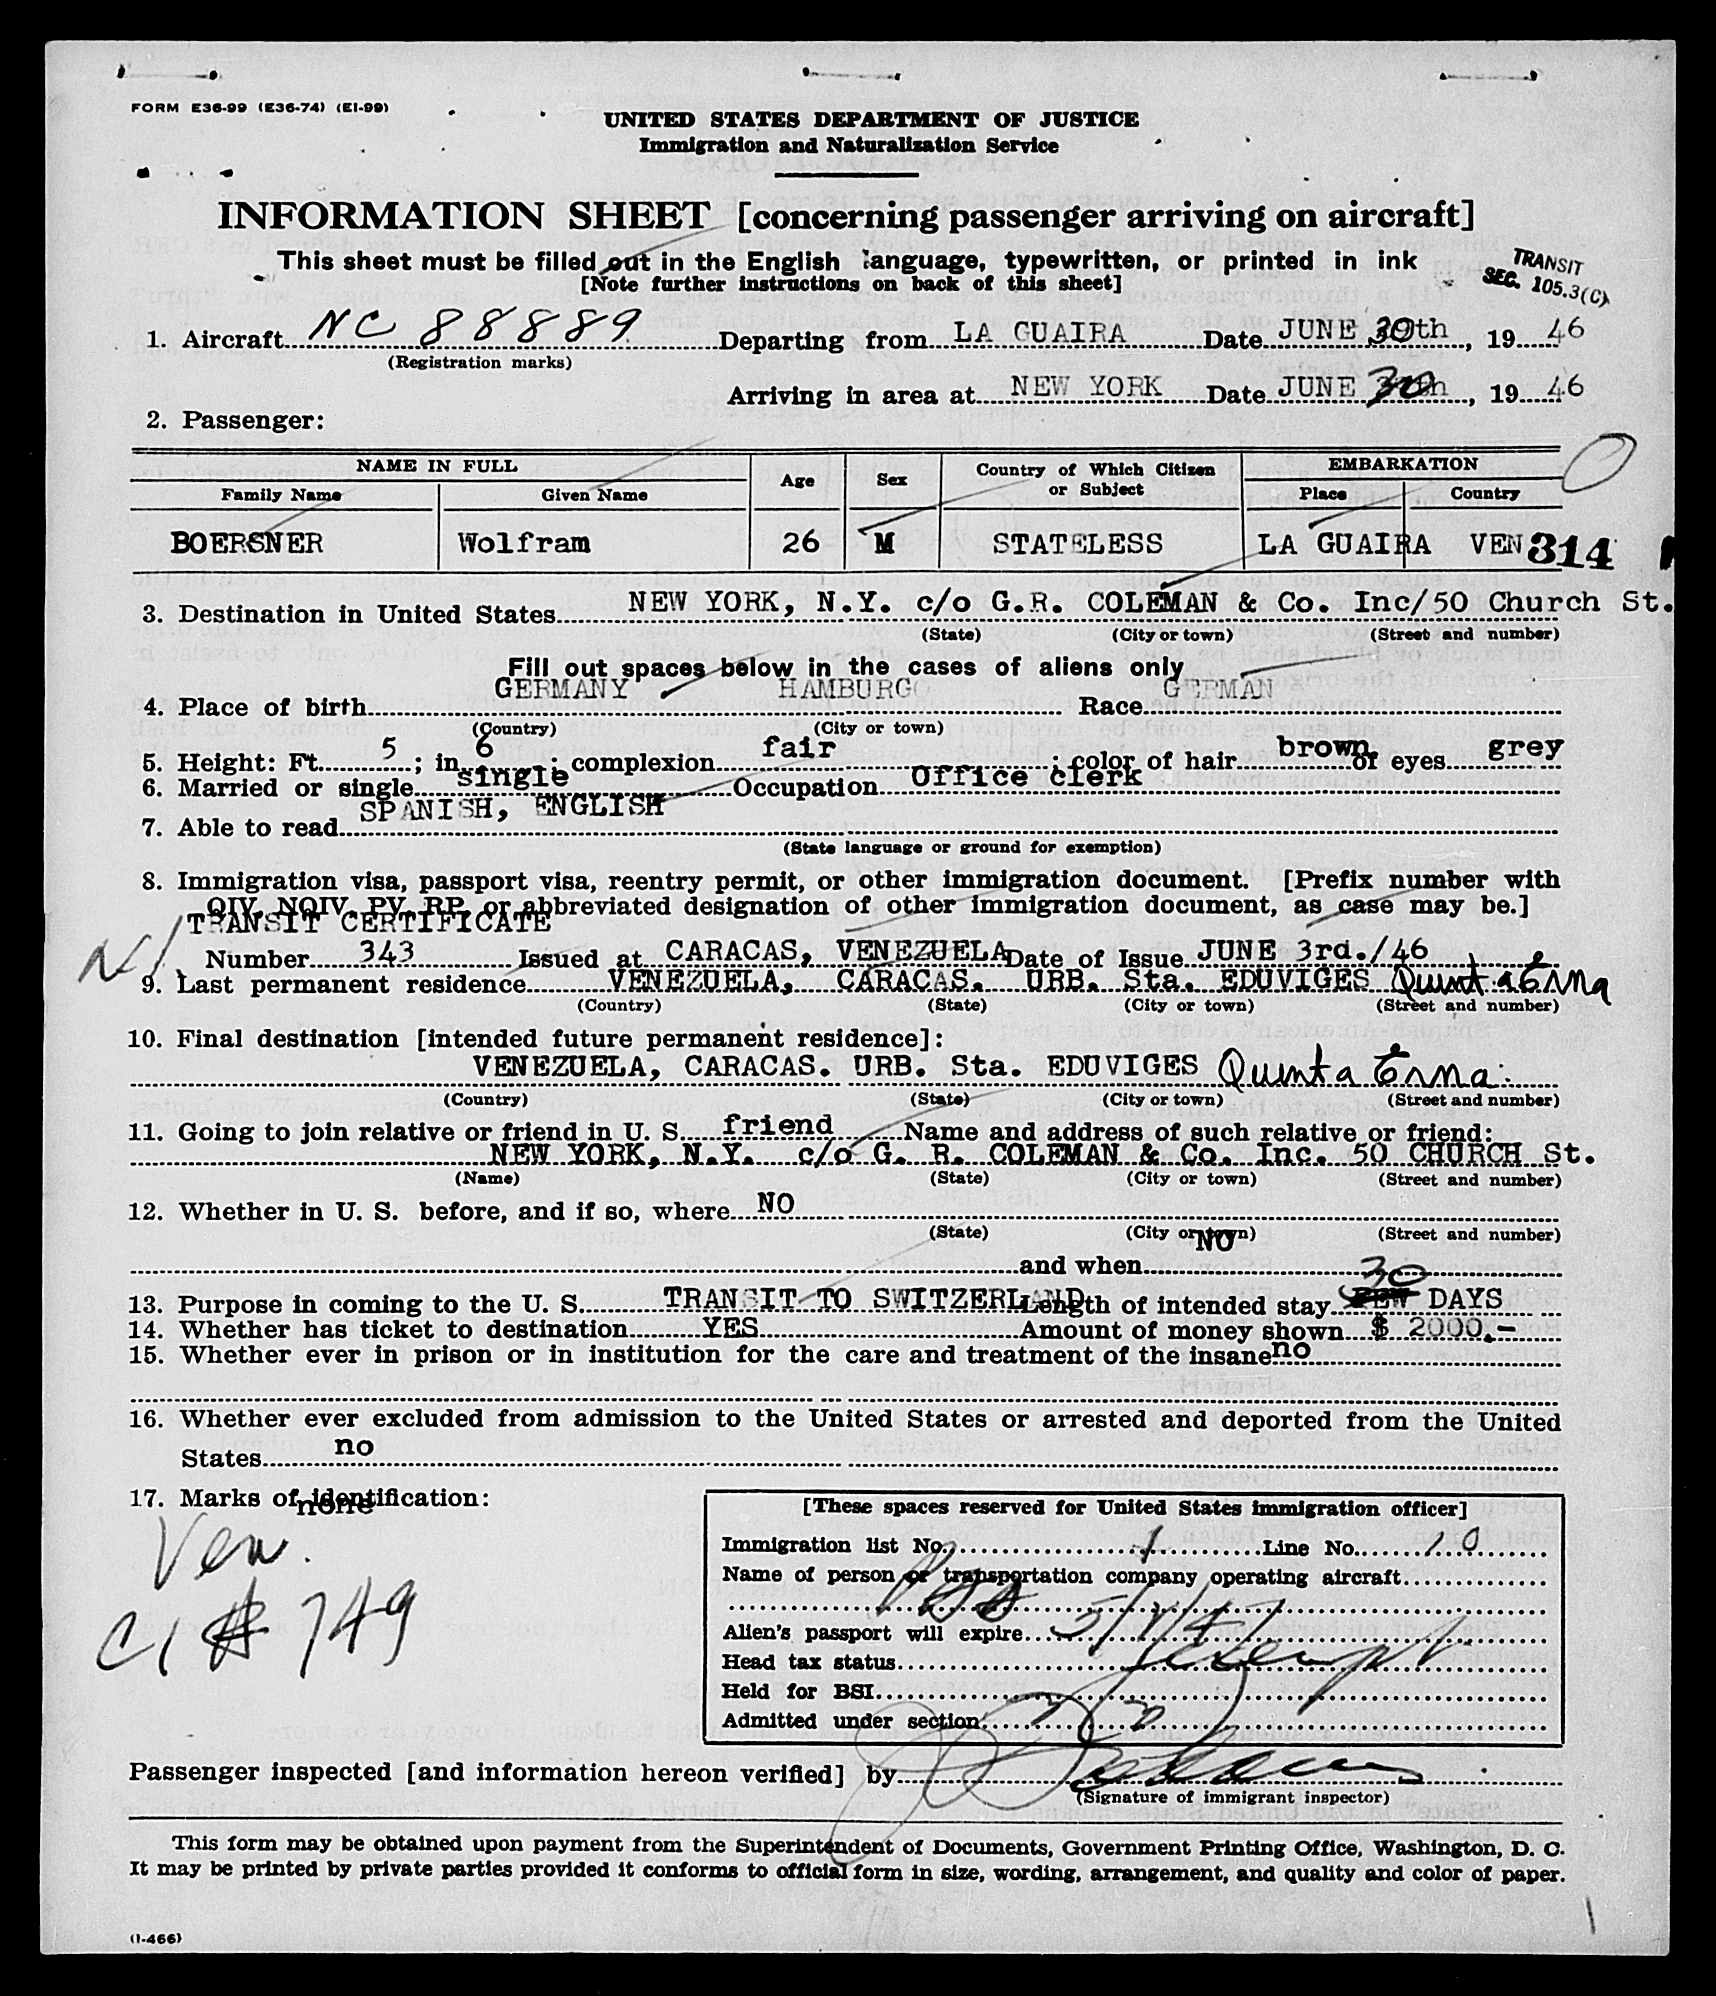 FORM E36-99 (E36-74) (EI-99)
UNITED STATES DEPARTMENT OF JUSTICE
Immigration and Naturalization Service
INFORMATION SHEET [concerning passenger arriving on aircraft]
This sheet must be filled out in the English language, typewritten, or printed in ink
[Note further instructions on back of this sheet]
TRANSIT
SEC. 105.3(C)
1. Aircraft NC 88889 Departing from LA GUAIRA Date JUNE 30th, 19 46
(Registration marks)
Arriving in area at NEW YORK Date JUNE 30th, 19 46
2. Passenger:
NAME IN FULL Age Sex Country of Which Citizen or Subject EMBARKATION
Family Name Given Name Place Country
BOERSNER Wolfram 26 M STATELESS LA GUAIRA VEN 314
3. Destination in United States NEW YORK, N.Y. c/o G.R. COLEMAN & Co. Inc/50 Church St.
(State) (City or town) (Street and number)
Fill out spaces below in the cases of aliens only
4. Place of birth GERMANY HAMBURGO Race GERMAN
(Country) (City or town)
5. Height: Ft. 5; in. 6; complexion fair; color of hair brown of eyes grey
6. Married or single single Occupation Office clerk
7. Able to read SPANISH, ENGLISH
(State language or ground for exemption)
8. Immigration visa, passport visa, reentry permit, or other immigration document. [Prefix number with
QIV, NQIV, PV, RP, or abbreviated designation of other immigration document, as case may be.]
TRANSIT CERTIFICATE
Number 343 Issued at CARACAS, VENEZUELA Date of Issue JUNE 3rd./46
9. Last permanent residence VENEZUELA, CARACAS. URB. Sta. EDUVIGES Quinta Erna
(Country) (State) (City or town) (Street and number)
10. Final destination [intended future permanent residence]:
VENEZUELA, CARACAS. URB. Sta. EDUVIGES Quinta Erna.
(Country) (State) (City or town) (Street and number)
11. Going to join relative or friend in U. S. friend Name and address of such relative or friend:
NEW YORK, N.Y. c/o G. R. COLEMAN & Co. Inc. 50 CHURCH St.
(Name) (State) (City or town) (Street and number)
12. Whether in U. S. before, and if so, where NO
(State) (City or town) (Street and number)
and when NO
13. Purpose in coming to the U. S. TRANSIT TO SWITZERLAND Length of intended stay 30 DAYS
14. Whether has ticket to destination YES Amount of money shown $ 2000.-
15. Whether ever in prison or in institution for the care and treatment of the insane no
16. Whether ever excluded from admission to the United States or arrested and deported from the United
States no
17. Marks of identification:
none
Ven.
CI # 749
[These spaces reserved for United States immigration officer]
Immigration list No. 1 Line No. 10
Name of person or transportation company operating aircraft
Alien's passport will expire 5/1/47
Head tax status exempt
Held for BSI
Admitted under section
Passenger inspected [and information hereon verified] by
(Signature of immigrant inspector)
This form may be obtained upon payment from the Superintendent of Documents, Government Printing Office, Washington, D. C.
It may be printed by private parties provided it conforms to official form in size, wording, arrangement, and quality and color of paper.
(I-466)